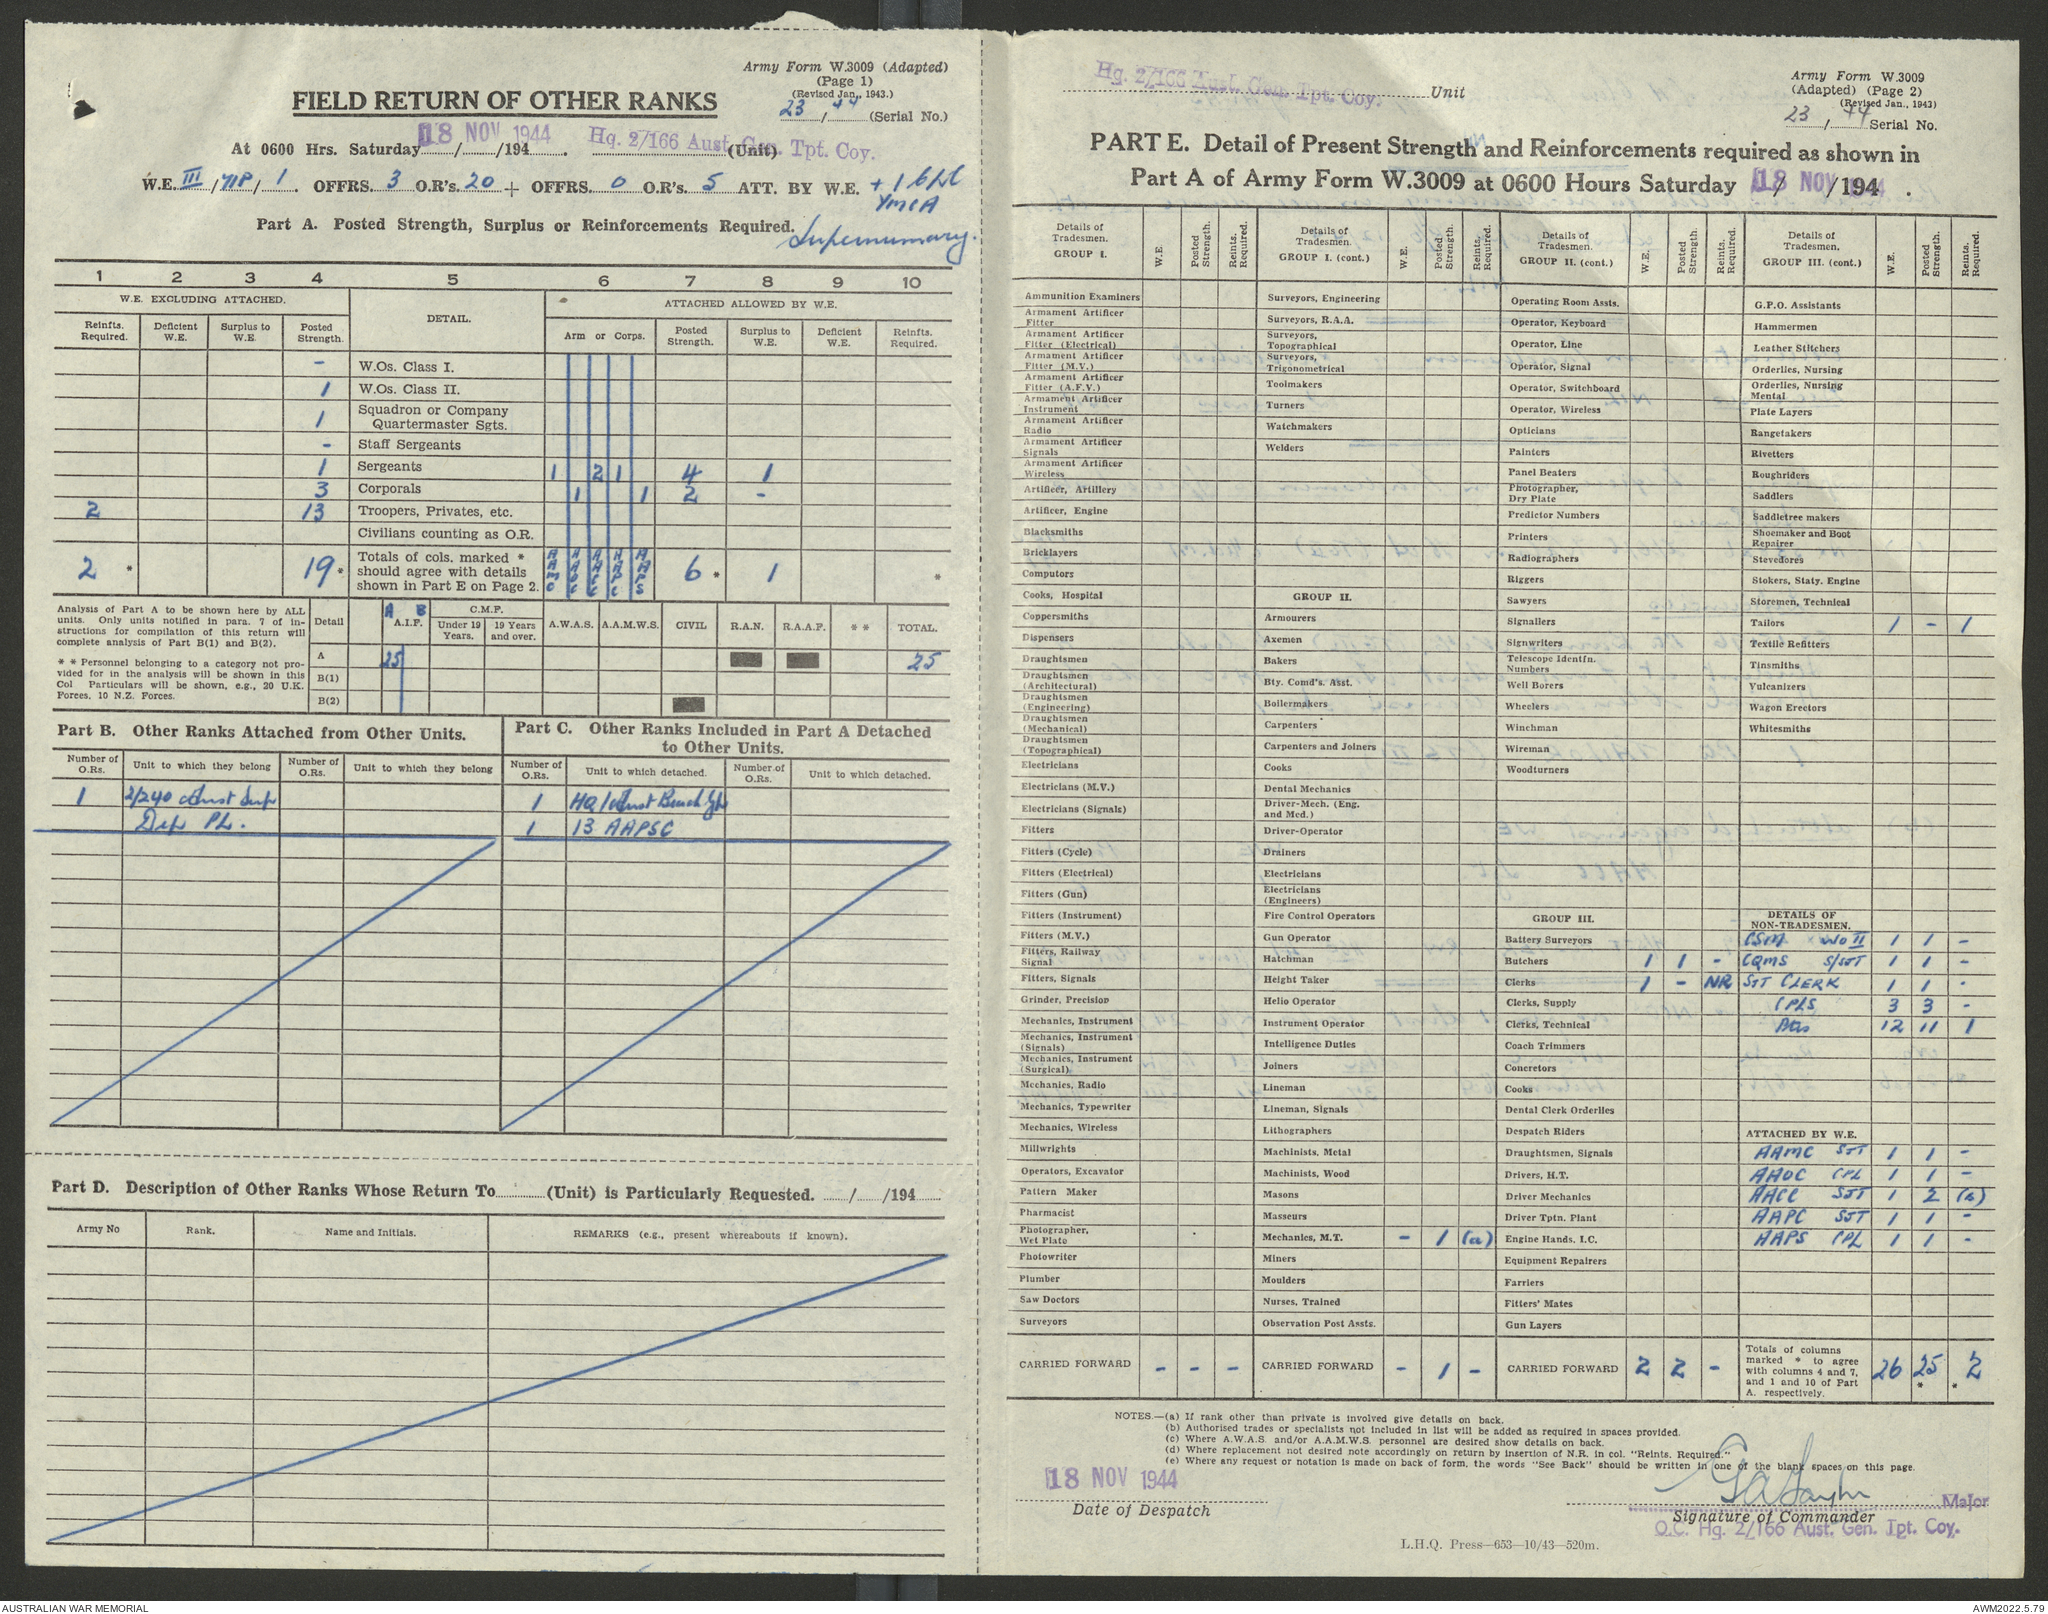 Army Form W.3009 (Adapted)
(Page 1)
(Revised Jan., 1943.)
FIELD RETURN OF OTHER RANKS
23 / 44 (Serial No.)
At 0600 Hrs. Saturday 18 NOV 1944 /194 . Hq. 2/166 Aust. Gen. Tpt. Coy. (Unit)
W.E. III / 71P / 1 OFFRS. 3 O.R's. 20 + OFFRS. 0 O.R's. 5 ATT. BY W.E. + 1
YMCA
Supernumary.
Part A. Posted Strength, Surplus or Reinforcements Required.
1 2 3 4 5 6 7 8 9 10
W.E. EXCLUDING ATTACHED. DETAIL. ATTACHED ALLOWED BY W.E.
Reinfts. Required. Deficient W.E. Surplus to W.E. Posted Strength. Arm or Corps. Posted Strength. Surplus to W.E. Deficient W.E. Reinfts. Required.
- W.Os. Class I.
1 W.Os. Class II.
1 Squadron or Company Quartermaster Sgts.
- Staff Sergeants
1 Sergeants 1 2 1 4 1
3 Corporals 1 1 2 -
2 13 Troopers, Privates, etc.
Civilians counting as O.R.
2 * 19 * Totals of cols. marked * should agree with details shown in Part E on Page 2. AAMC AAOC AACC AAPC AAPS 6 * 1 *
Analysis of Part A to be shown here by ALL units. Only units notified in para. 7 of instructions for compilation of this return will complete analysis of Part B(1) and B(2).
* * Personnel belonging to a category not provided for in the analysis will be shown in this Col Particulars will be shown, e.g., 20 U.K. Forces, 10 N.Z. Forces.
Detail A B A.I.F. C.M.F. Under 19 Years. 19 Years and over. A.W.A.S. A.A.M.W.S. CIVIL R.A.N. R.A.A.F. * * TOTAL.
A 25 25
B(1)
B(2)
Part B. Other Ranks Attached from Other Units.
Number of O.Rs. Unit to which they belong Number of O.Rs. Unit to which they belong
1 2/240 Aust Sup
Dep Pl.
Part C. Other Ranks Included in Part A Detached to Other Units.
Number of O.Rs. Unit to which detached. Number of O.Rs. Unit to which detached.
1 HQ 1 Aust Beach Gp
1 13 AAPSC
Part D. Description of Other Ranks Whose Return To (Unit) is Particularly Requested. / /194
Army No Rank. Name and Initials. REMARKS (e.g., present whereabouts if known).
Hq. 2/166 Aust. Gen. Tpt. Coy. Unit
Army Form W.3009
(Adapted) (Page 2)
(Revised Jan., 1943)
23 / 44 Serial No.
PART E. Detail of Present Strength and Reinforcements required as shown in
Part A of Army Form W.3009 at 0600 Hours Saturday 18 NOV 1944 /194 .
Details of Tradesmen. GROUP I. W.E. Posted Strength. Reints. Required.
Ammunition Examiners
Armament Artificer Fitter
Armament Artificer Fitter (Electrical)
Armament Artificer Fitter (M.V.)
Armament Artificer Fitter (A.F.V.)
Armament Artificer Instrument
Armament Artificer Radio
Armament Artificer Signals
Armament Artificer Wireless
Artificer, Artillery
Artificer, Engine
Blacksmiths
Bricklayers
Computors
Cooks, Hospital
Coppersmiths
Dispensers
Draughtsmen
Draughtsmen (Architectural)
Draughtsmen (Engineering)
Draughtsmen (Mechanical)
Draughtsmen (Topographical)
Electricians
Electricians (M.V.)
Electricians (Signals)
Fitters
Fitters (Cycle)
Fitters (Electrical)
Fitters (Gun)
Fitters (Instrument)
Fitters (M.V.)
Fitters, Railway Signal
Fitters, Signals
Grinder, Precision
Mechanics, Instrument
Mechanics, Instrument (Signals)
Mechanics, Instrument (Surgical)
Mechanics, Radio
Mechanics, Typewriter
Mechanics, Wireless
Millwrights
Operators, Excavator
Pattern Maker
Pharmacist
Photographer, Wet Plate
Photowriter
Plumber
Saw Doctors
Surveyors
CARRIED FORWARD - - -
Details of Tradesmen. GROUP I. (cont.) W.E. Posted Strength. Reints. Required.
Surveyors, Engineering
Surveyors, R.A.A.
Surveyors, Topographical
Surveyors, Trigonometrical
Toolmakers
Turners
Watchmakers
Welders
GROUP II.
Armourers
Axemen
Bakers
Bty. Comd's. Asst.
Boilermakers
Carpenters
Carpenters and Joiners
Cooks
Dental Mechanics
Driver-Mech. (Eng. and Med.)
Driver-Operator
Drainers
Electricians
Electricians (Engineers)
Fire Control Operators
Gun Operator
Hatchman
Height Taker
Helio Operator
Instrument Operator
Intelligence Duties
Joiners
Lineman
Lineman, Signals
Lithographers
Machinists, Metal
Machinists, Wood
Masons
Masseurs
Mechanics, M.T. - 1 (a)
Miners
Moulders
Nurses, Trained
Observation Post Assts.
CARRIED FORWARD - 1 -
Details of Tradesmen. GROUP II. (cont.) W.E. Posted Strength. Reints. Required.
Operating Room Assts.
Operator, Keyboard
Operator, Line
Operator, Signal
Operator, Switchboard
Operator, Wireless
Opticians
Painters
Panel Beaters
Photographer, Dry Plate
Predictor Numbers
Printers
Radiographers
Riggers
Sawyers
Signallers
Signwriters
Telescope Identfn. Numbers
Well Borers
Wheelers
Winchman
Wireman
Woodturners
GROUP III.
Battery Surveyors
Butchers 1 1 -
Clerks 1 - NR
Clerks, Supply
Clerks, Technical
Coach Trimmers
Concretors
Cooks
Dental Clerk Orderlies
Despatch Riders
Draughtsmen, Signals
Drivers, H.T.
Driver Mechanics
Driver Tptn. Plant
Engine Hands. I.C.
Equipment Repairers
Farriers
Fitters' Mates
Gun Layers
CARRIED FORWARD 2 2 -
Details of Tradesmen. GROUP III. (cont.) W.E. Posted Strength. Reints. Required.
G.P.O. Assistants
Hammermen
Leather Stitchers
Orderlies, Nursing
Orderlies, Nursing Mental
Plate Layers
Rangetakers
Rivetters
Roughriders
Saddlers
Saddletree makers
Shoemaker and Boot Repairer
Stevedores
Stokers, Staty. Engine
Storemen, Technical
Tailors 1 - 1
Textile Refitters
Tinsmiths
Vulcanizers
Wagon Erectors
Whitesmiths
DETAILS OF NON-TRADESMEN.
CSM WO II 1 1 -
CQMS S/SJT 1 1 -
SJT CLERK 1 1 -
CPLS 3 3 -
Ptes 12 11 1
ATTACHED BY W.E.
AAMC SJT 1 1 -
AAOC CPL 1 1 -
AACC SJT 1 2 (a)
AAPC SJT 1 1 -
AAPS CPL 1 1 -
Totals of columns marked * to agree with columns 4 and 7, and 1 and 10 of Part A. respectively. 26 25 * 2 *
NOTES.—(a) If rank other than private is involved give details on back.
(b) Authorised trades or specialists not included in list will be added as required in spaces provided.
(c) Where A.W.A.S. and/or A.A.M.W.S. personnel are desired show details on back.
(d) Where replacement not desired note accordingly on return by insertion of N.R. in col. "Reints. Required."
(e) Where any request or notation is made on back of form, the words "See Back" should be written in one of the blank spaces on this page.
18 NOV 1944
Date of Despatch
Major
Signature of Commander
O.C. Hq. 2/166 Aust. Gen. Tpt. Coy.
L.H.Q. Press—653—10/43—520m.
AUSTRALIAN WAR MEMORIAL
AWM2022.5.79